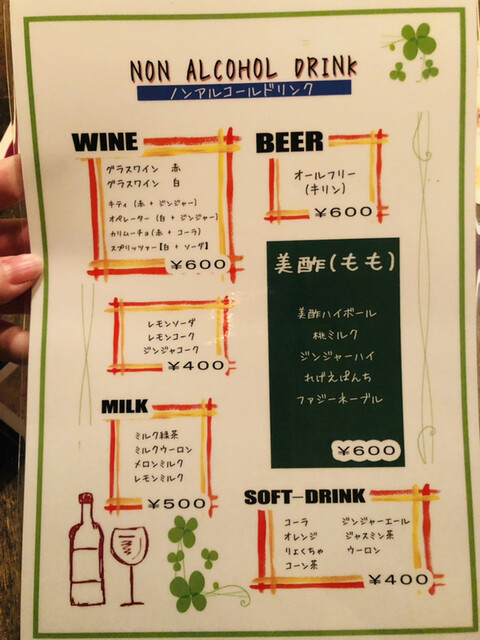 NON ALCOHOL DRINK
ノンアルコールドリンク
WINE
グラスワイン 赤
グラスワイン 白
キティ(赤 + ジンジャー)
オペレーター(白 + ジンジャー)
カリムーチョ(赤 + コーラ)
スプリッツァー【白 + ソーダ】
¥600
BEER
オールフリー
(キリン)
¥600
レモンソーダ
レモンコーク
ジンジャコーク
¥400
美酢(もも)
美酢ハイボール
桃ミルク
ジンジャーハイ
れげえぱんち
ファジーネーブル
¥600
MILK
ミルク緑茶
ミルクウーロン
メロンミルク
レモンミルク
¥500
SOFT-DRINK
コーラ ジンジャーエール
オレンジ ジャスミン茶
りょくちゃ ウーロン
コーン茶
¥400